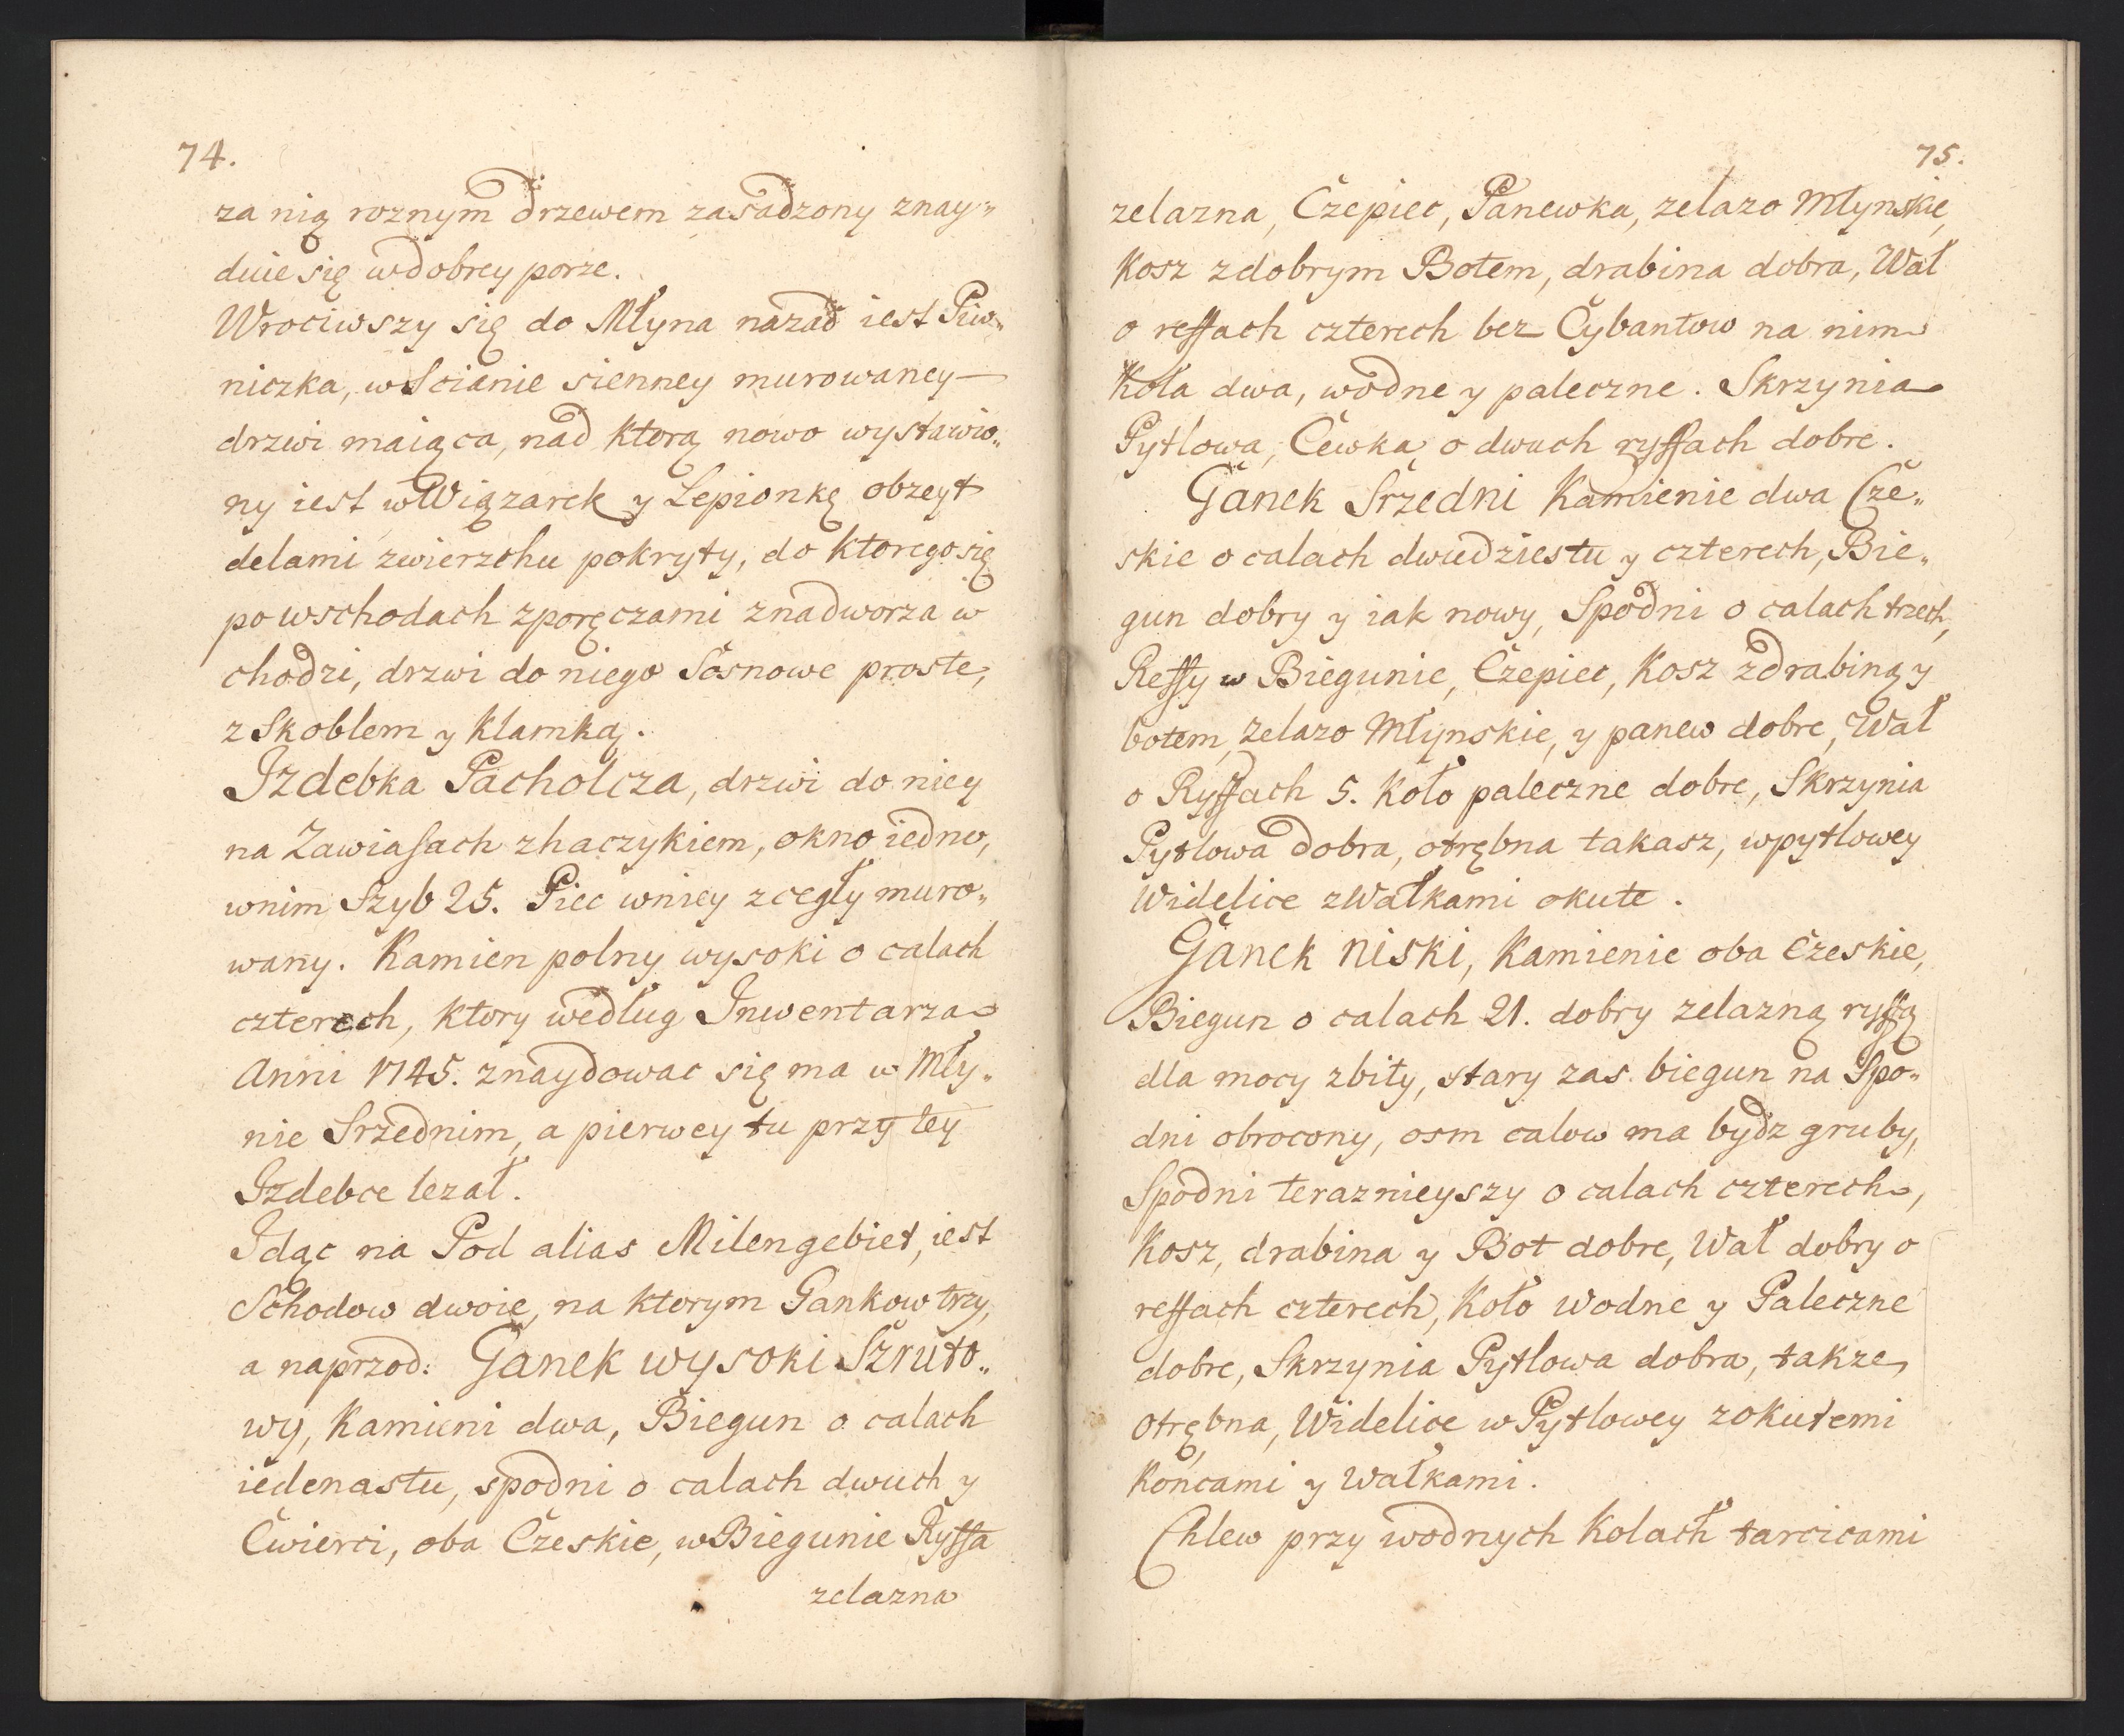 74.
za nią roznym drzewem zasadzony znay„
duie się wdobrey porze.
Wrociwszy się do Młyna nazad iest Piw„
niczka, w Scianie sienney murowaney
drzwi maiąca, nad ktorą nowo wystawio„
ny iest w Wiązarek y Lepionkę obzeyt
delami zwierzchu pokryty, do ktorego się
po wschodach zporęczami znadworza w
chodzi, drzwi do niego Sosnowe proste,
z Skoblem y klamką.
Izdebka Pacholcza, drzwi do niey
na Zawiasach zhaczykiem, okno iedno,
wnim Szyb 25. Piec wniey z cegły muro„
wany. Kamien polny wysoki o calach
czterech, ktory według Inwentarza
Anni 1745. znaydowac się ma w Mły„
nie Srzednim, a pierwey tu przy tey
Izdebce lezał.
Idąc na Pod alias Milengebiet, iest
Schodow dwoie, na ktorym Gankow trzy,
a naprzod: Ganek wysoki Szruto„
wy, Kamieni dwa, Biegun o calach
iedenastu, spodni o calach dwuch y
Cwierci, oba Czeskie, w Biegunie Ryffa
zelazna
75.
zelazna, Czepiec, Panewka, zelazo Młynskie,
Kosz z dobrym Botem, drabina dobra, Wał
o reffach czterech bez Cybantow na nim
Koła dwa, wodne y paleczne. Skrzynia
Pytlowa, Cewka o dwuch ryffach dobre.
Ganek Srzedni Kamienie dwa Cze„
skie o calach dwudziestu y czterech, Bie„
gun dobry y iak nowy, Spodni o calach trzech,
Reffy w Biegunie, Czepiec, Kosz zdrabiną y
botem, zelazo Młynskie, y panew dobre, Wał
o Ryffach 5. Koło paleczne dobre, Skrzynia
Pytlowa dobra, otrębna takasz, wpytlowey
Widelice z Wałkami okute.
Ganek niski, Kamienie oba Czeskie,
Biegun o calach 21. dobry zelazną ryffą
dla mocy zbity, stary zas biegun na Spo„
dni obrocony, osm calow ma bydz gruby,
Spodni teraznieyszy o calach czterech,
Kosz, drabina y Bot dobre, Wał dobry o
reffach czterech, Koło wodne y Paleczne
dobre, Skrzynia Pytlowa dobra, takze
otrębna, Widelice w Pytlowey z okutemi
Koncami y Wałkami.
Chlew przy wodnych Kołach tarcicami